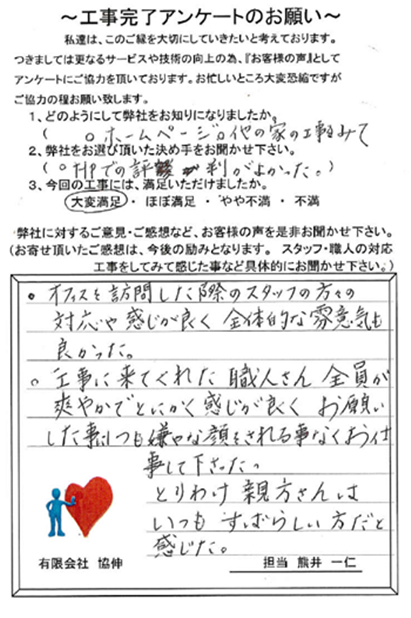 ～工事完了アンケートのお願い～
私達は、このご縁を大切にしていきたいと考えております。
つきましては更なるサービスや技術の向上の為、『お客様の声』として
アンケートにご協力を頂いております。お忙しいところ大変恐縮ですが
ご協力の程お願い致します。
1、どのようにして弊社をお知りになりましたか。
( ○ホームページ○他の家の工事みて
2、弊社をお選び頂いた決め手をお聞かせ下さい。
(○HPでの評判がよかった。)
3、今回の工事には、満足いただけましたか。
大変満足 ・ ほぼ満足 ・ やや不満 ・ 不満
弊社に対するご意見・ご感想など、お客様の声を是非お聞かせ下さい。
(お寄せ頂いたご感想は、今後の励みとなります。 スタッフ・職人の対応
工事をしてみて感じた事など具体的にお聞かせ下さい。)
○オフィスを訪問した際のスタッフの方々の
対応や感じが良く 全体的な雰意気も
良かった。
○工事に来てくれた 職人さん 全員が
爽やかでとにかく感じが良く お願い
した事にも嫌やな顔をされる事なくお仕
事して下さった。
とりわけ 親方さんは
いつも すばらしい方だと
感じた。
有限会社 協伸
担当 熊井 一仁